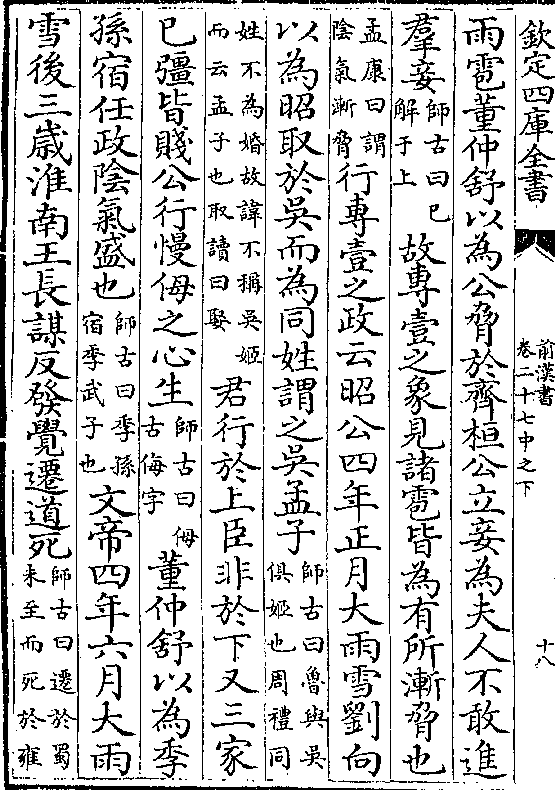 欽定四庫全書
前漢書
卷二十七中之下
十八
雨雹董仲舒以為公脅於齊桓公立妾為夫人不敢進
羣妾師古曰已解于上故專壹之象見諸雹皆為有所漸脅也
孟康曰謂陰氣漸脅行專壹之政云昭公四年正月大雨雪劉向
以為昭取於吳而為同姓謂之吳孟子師古曰魯與吳俱姬也周禮同
姓不為婚故諱不稱吳姬而云孟子也取讀曰娶君行於上臣非於下又三家
已彊皆賤公行慢㑄之心生師古曰㑄古侮字董仲舒以為季
孫宿任政陰氣盛也師古曰季孫宿季武子也文帝四年六月大雨
雪後三歲淮南王長謀反發覺遷道死師古曰遷於蜀未至而死於雍